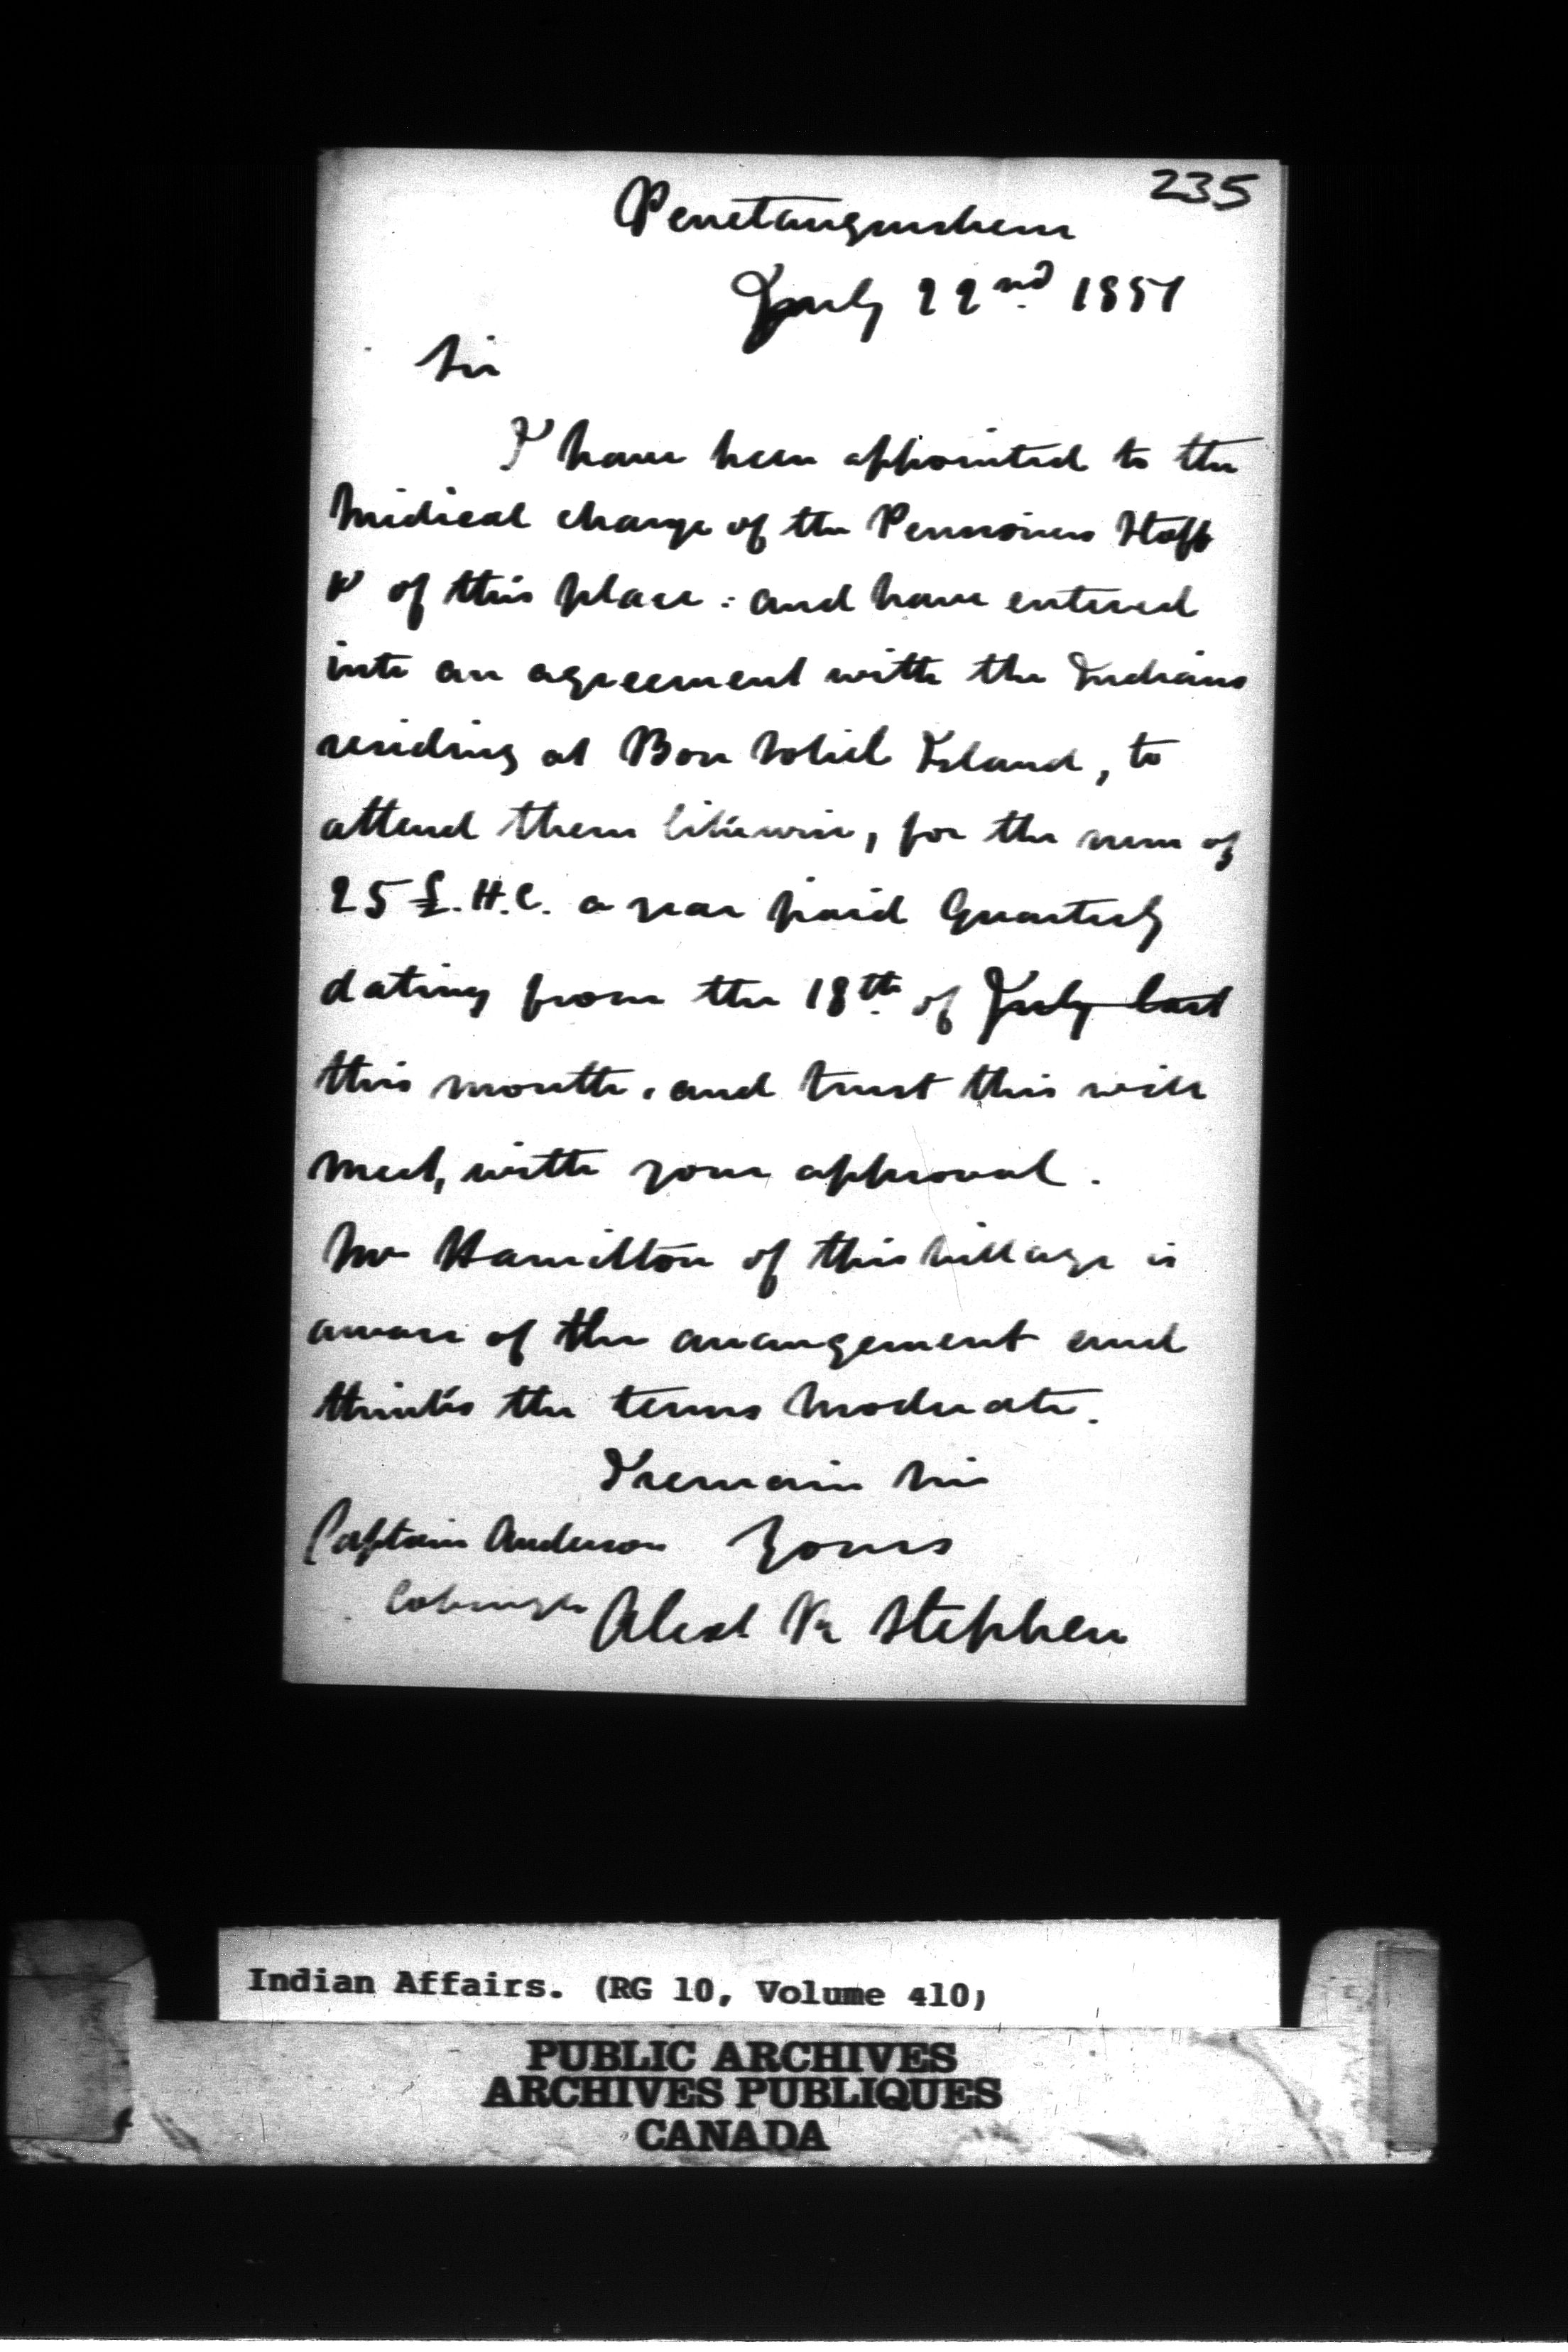 235
Penetanguishene
July 22nd 1851
Sir
I have been appointed to the
Medical charge of the Pensioners Staff
& of this place: and have entered
into an agreement with the Indians
residing at Beau Soliel Island, to
attend them likewise, for the sum of
25 £. H.C. a year paid Quarterly
dating from the 18th of July last
this month, and trust this will
meet, with your approval.
Mr Hamilton of this village is
aware of the arrangement and
thinks the terms moderate.
I remain Sir
Captain Anderson Yours
Cobourg Alexr Stephen
Indian Affairs. (RG 10, Volume 410)
PUBLIC ARCHIVES
ARCHIVES PUBLIQUES
CANADA